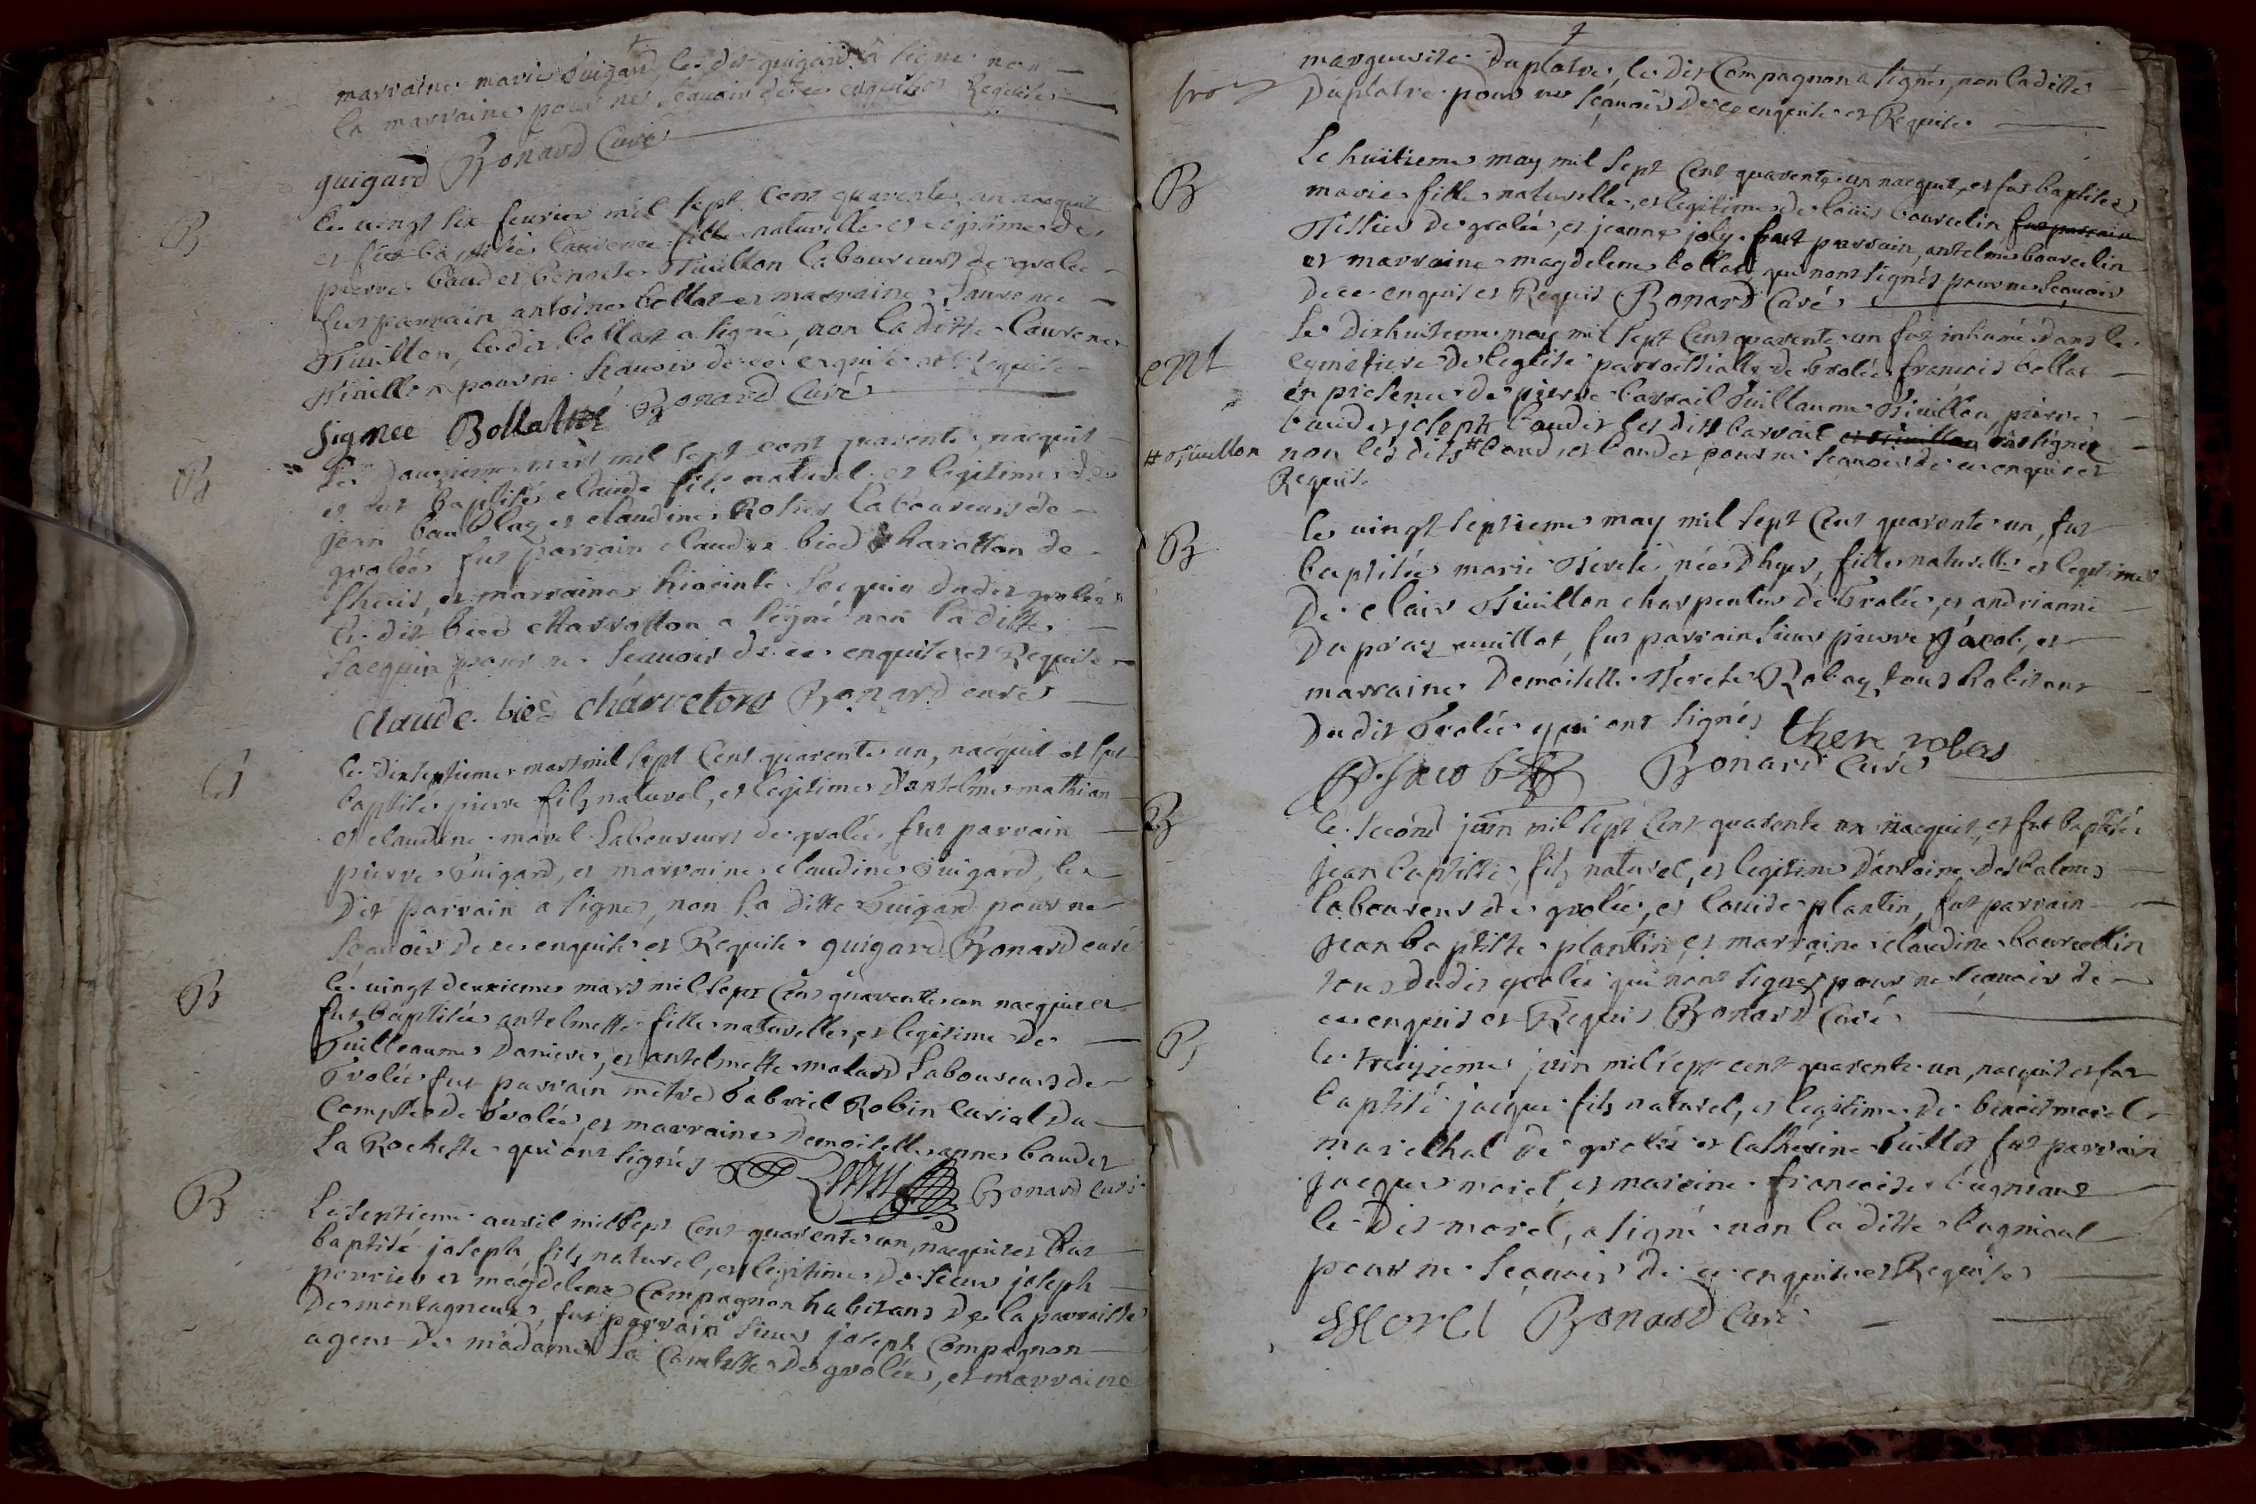 marraine marie Guigard, le dit guigard a signé non
la marraine pour ne sçauoir de ce enquise Requise
guigard Bonard Curé
B
le uingt six feurier mil sept cent quarente un nacquit
et fut baptisée laurence fille naturelle et legitime de
pierre baud et benoite Thuillon laboureurs de grolée
fut parrain antoine bollat et marraine Laurence
Thuillon, ledit bollat a signé, non la ditte laurence
Thuillon pour ne sçauoir de ce enquise et Requise
signee Bollat Bonard Curé
B
le mars mil sept cent quarente, nacquit
et fut baptisé claude fils naturel et legitime de
jean et claudine Rosier laboureurs de
grolée fut parrain claude bied charatton de
et marraine hiacinte Jacquin dudit grolée
le dit bied charratton a signé non la ditte
Jacquin pour ne sçauoir de ce enquise et Requise
claude bied charveton Bonard curé
B
le dixseptieme mars mil sept cent quarente un, nacquit et fut
baptisé pierre fils naturel, et legitime d'antelme mathian
et claudine morel Laboureurs de grolée, fut parrain
pierre Guigard, et marraine claudine Guigard, le
dit parrain a signé, non la ditte Guigard pour ne
sçauoir de ce enquise et Requise guigard Bonard curé
B
le uingt deuxieme mars mil sept cent quarente un nacquit et
fut baptisée antelmette fille naturelle, et legitime de
Guilleaume Daniere, et antelmette malard Laboureurs de
Grolée fut parrain metre Gabriel Robin Curial du
Comptée de Grolée, et marraine Demoiselle anne baudet
La Rochette qui ont signés Bonard Curé
B
Le septieme auril mil sept cent quarente un, nacquit et fut
baptisé joseph fils naturel, et legitime de sieur joseph
perrier et magdelene Compagnon habitans de la parroisse
de montagneux, fut parrain sieur joseph Compagnon
agent de madame La Comtesse de grolée, et marraine
marguerite Duplatre, le dit Compagnon a signé, non la ditte
Duplatre pour ne sçauoir de ce enquise et Requise
B
Le huitieme may mil sept cent quarente un nacquit, et fut baptisée
marie fille naturelle, et legitime de louis bourcelin fut parrain
Tissier de grolée, et jeanne joly fut parrain, antelme bourcelin
et marraine magdelene bollat qui nont signés pour ne sçauoir
de ce enquis et Requis Bonard Curé
ent
Le dixhuitieme may mil sept cent quarente un fut inhumé dans le
cymetiere de leglise parroissialle de Grolée francois bollat
en presence de pierre barrail Guillaume Thuillon, pierre
baud et joseph baudet les dits barrail et Thuillon ont signés
# Thuillon non les dits # baud, et baudet pour ne sçauoir de ce enquis et
Requis
B
le uingt septieme may mil sept cent quarente un, fut
baptisée marie Terese, née d'hyer, fille naturelle et legitime
De clair Thuillon charpentier de Grolée, et andrianne
Dupraz uuillot, fut parrain sieur pierre jacob, et
marraine Demoiselle Terese Robay, tous habitans
dudit Grolée qui ont signés there robes
P. Jacob Bonard Curé
B
le second juin mil sept cent quarente un nacquit, et fut baptisé
jean baptiste, fils naturel, et legitime d'antoine desbalmes
laboureur de grolée, et louise plantin, fut parrain
jean baptiste plantin, et marraine claudine bourcellin
tous dudit grolée qui nont signés pour ne sçauoir de
ce enquis et Requis Bonard Curé
B
le treizieme juin mil sept cent quarente un, nacquit et fut
baptisé jacque fils naturel, et legitime de benoit morel
marechal de grolée et Catherine Guillot fut parrain
jacque morel et marraine francoise bugniaut
le dit morel, a signé non la ditte bugniaut
pour ne sçauoir de ce enquise et Requise
Morel Bonard Curé